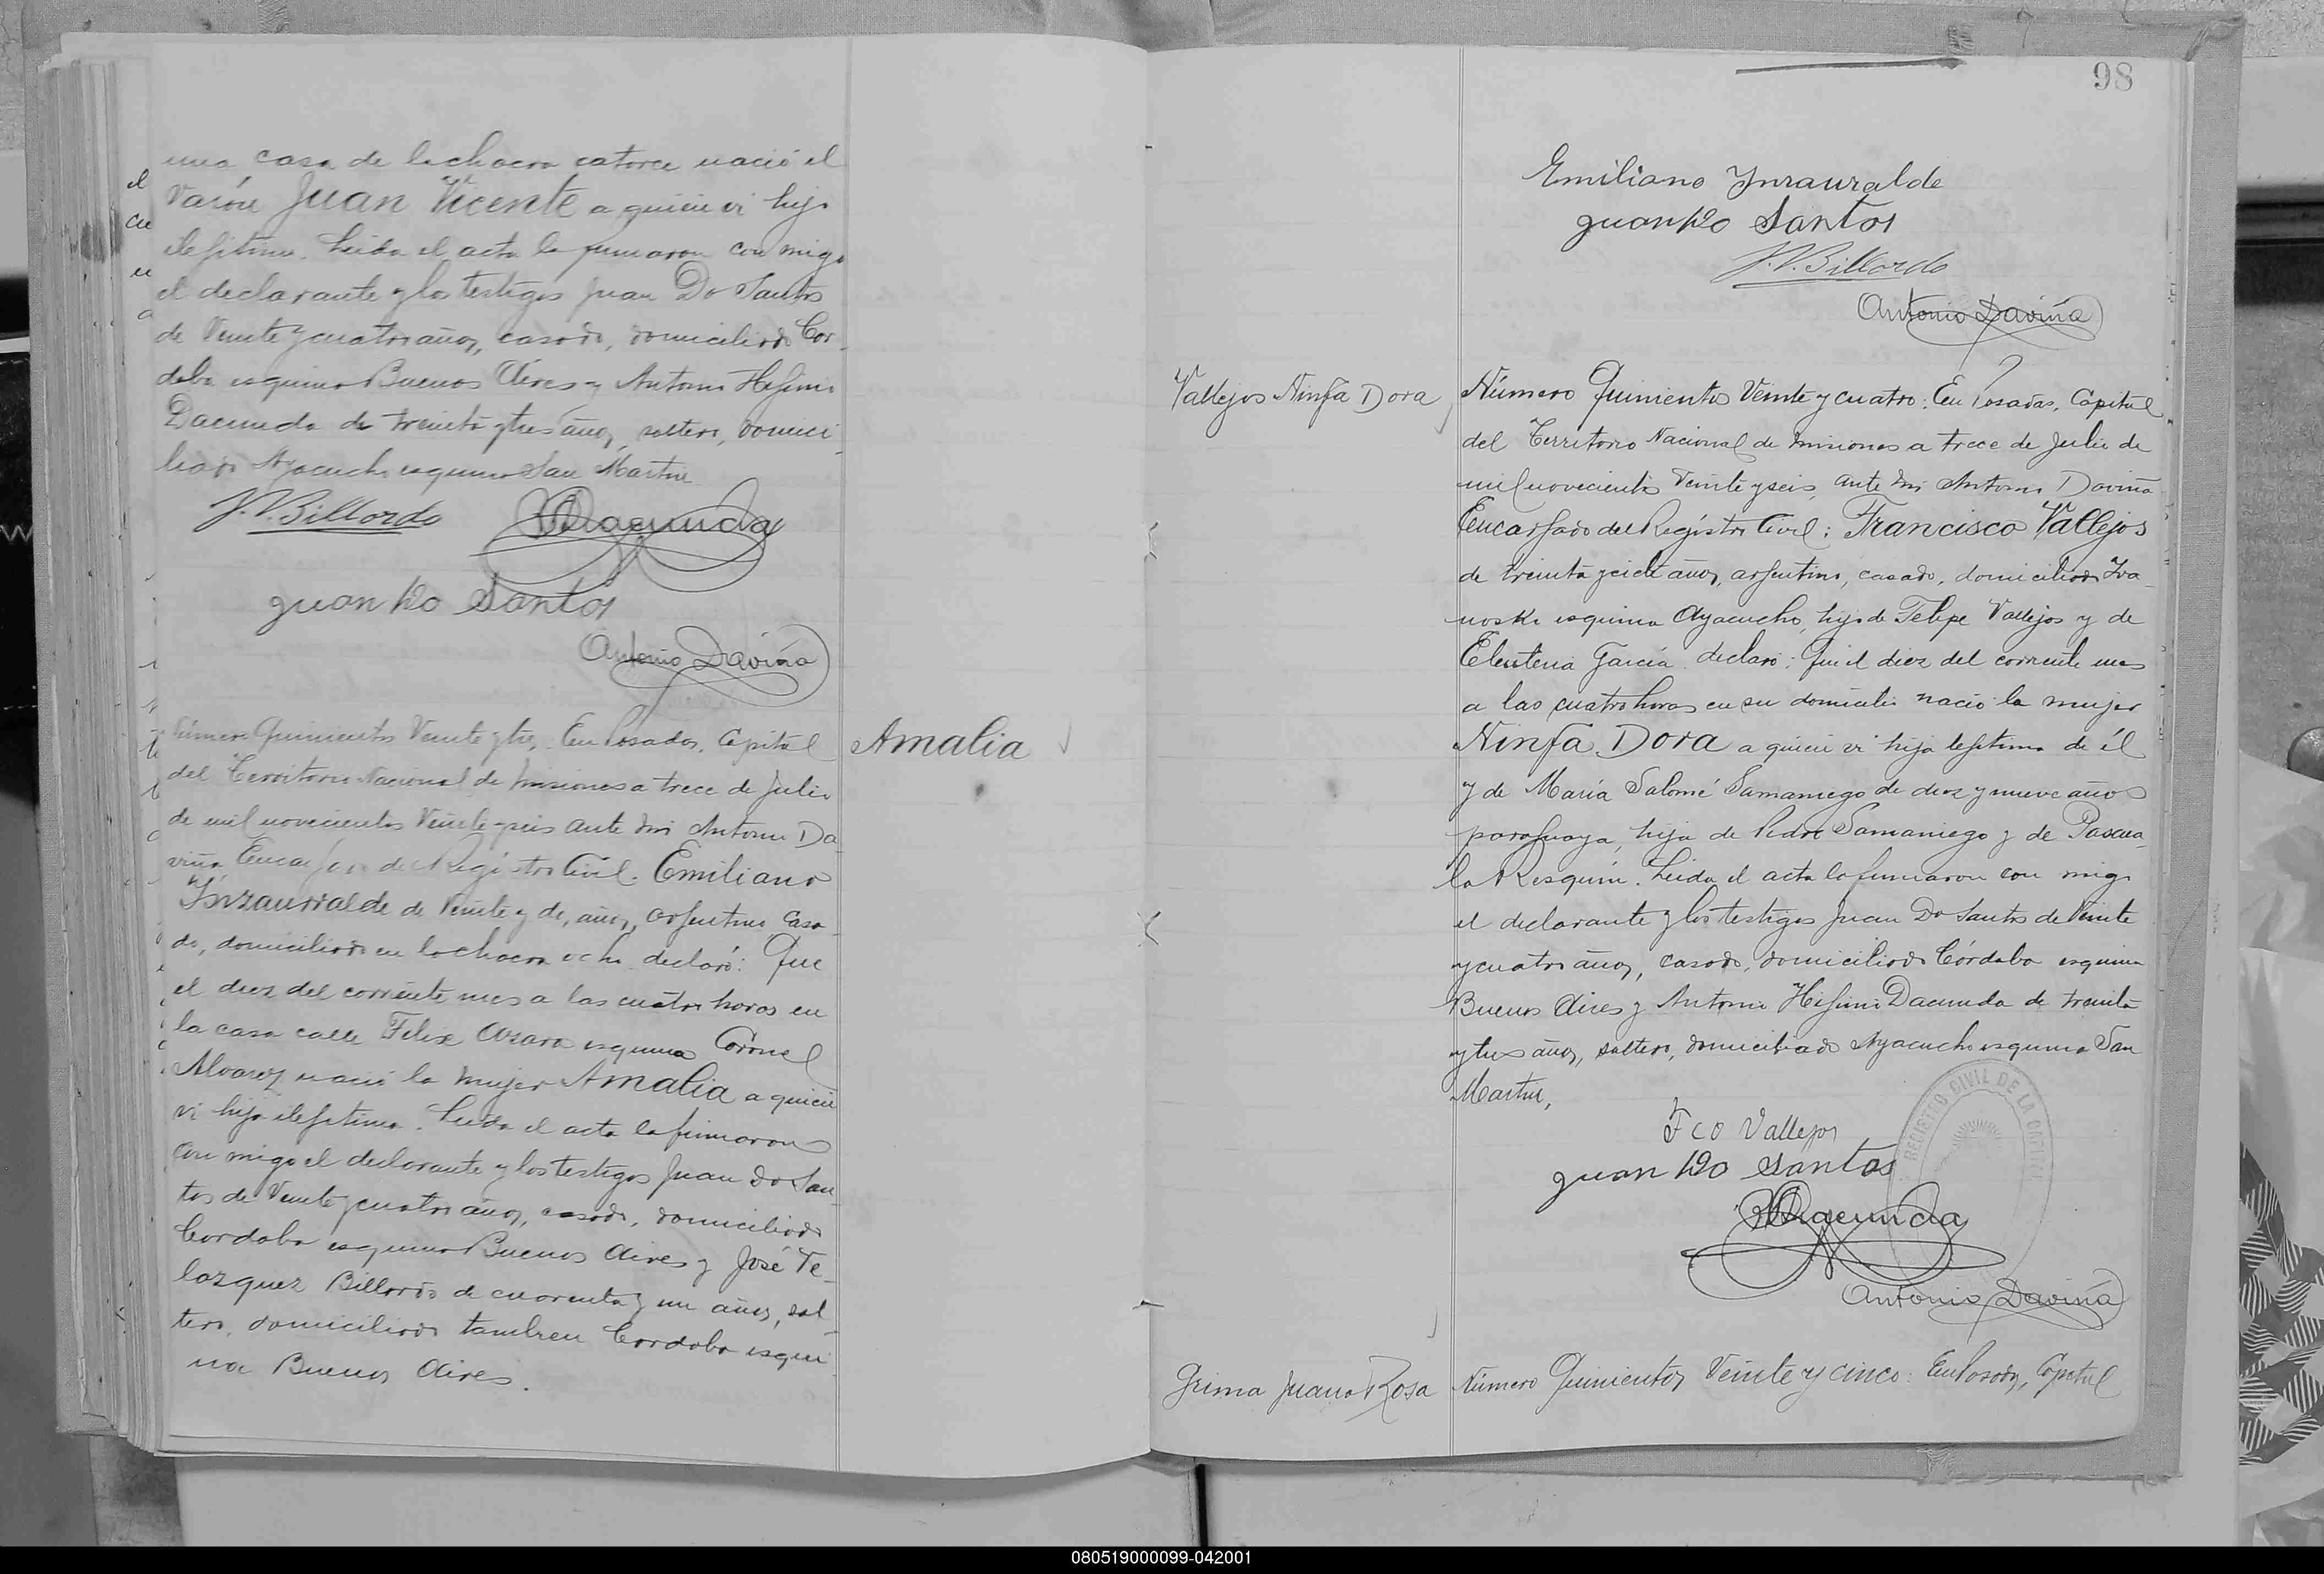 una casa de la chacra catorce nació el
varón Juan Vicente a quien vi hijo
ilejitimo. Leida el acta la firmaron con migo
el declarante y los testigos Juan Do Santos
de Veinte y cuatro años, casado, domiciliado Cor-
doba esquina Buenos Aires y Antonio Hijinio
Dacunda de treinta y tres años, soltero, domici-
liado Ayacucho esquina San Martin
J. V. Billordo
Dacunda
Juan Do Santos
Antonio Daviña
Número Quinientos Veinte y tres: En Posadas, Capital
del Territorio Nacional de Misiones a trece de Julio
de mil novecientos Veinte y seis ante mi Antonio Da
viña Encargado del Registro Civil: Emiliano
Inzaurralde de Veinte y dos, años, arjentino casa-
do, domiciliado en la chacra ocho declaró: Que
el diez del corriente mes a las cuatro horas en
la casa calle Felix Azara esquina Coronel
Alvarez nació la mujer Amalia a quien
vi hija ilejitima. Leida el acta la firmaron
con migo el declarante y los testigos Juan Do San
tos de Veinte y cuatro años, casado, domiciliado
Cordoba esquina Buenos Aires y José Ve-
lazquez Billordo de cuarenta y un años, sol-
tero, domiciliado tambien Cordoba esqui
na Buenos Aires.
Amalia
98
Emiliano Ynzauralde
Juan Do Santos
J. V. Billordo
Antonio Daviña
Vallejos Ninfa Dora
Número Quinientos Veinte y cuatro: En Posadas, Capital
del Territorio Nacional de Misiones a trece de Julio de
mil novecientos Veinte y seis, ante mi Antonio Daviña
Encargado del Registro Civil: Francisco Vallejos
de treinta y siete años, arjentino, casado, domiciliado Iva-
noski esquina Ayacucho, hijo de Felipe Vallejos y de
Eleuteria García declaró: Que el diez del corriente mes
a las cuatro horas en su domicilio nació la mujer
Ninfa Dora a quien vi hija lejitima de él
y de María Salomé Samaniego de diez y nueve años
paraguaya, hija de Pedro Samaniego y de Pascua-
la Resquin. Leida el acta la firmaron con migo
el declarante y los testigos Juan Do Santos de Veinte
y cuatro años, casado, domiciliado Córdoba esquina
Buenos Aires y Antonio Hijinio Dacunda de treinta
y tres años, soltero, domiciliado Ayacucho esquina San
Martin,
Fco Vallejos
Juan Do Santos
Dacunda
REGISTRO CIVIL DE LA CAPITAL
Antonio Daviña
Grima Juana Rosa
Número Quinientos Veinte y cinco: En Posadas, Capital
080519000099-042001